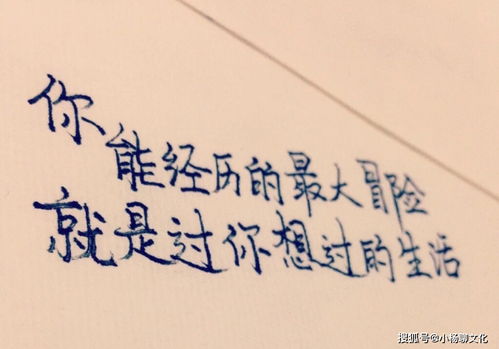 你能经历的最大冒险
就是过你想过的生活
搜狐号@小杨聊文化